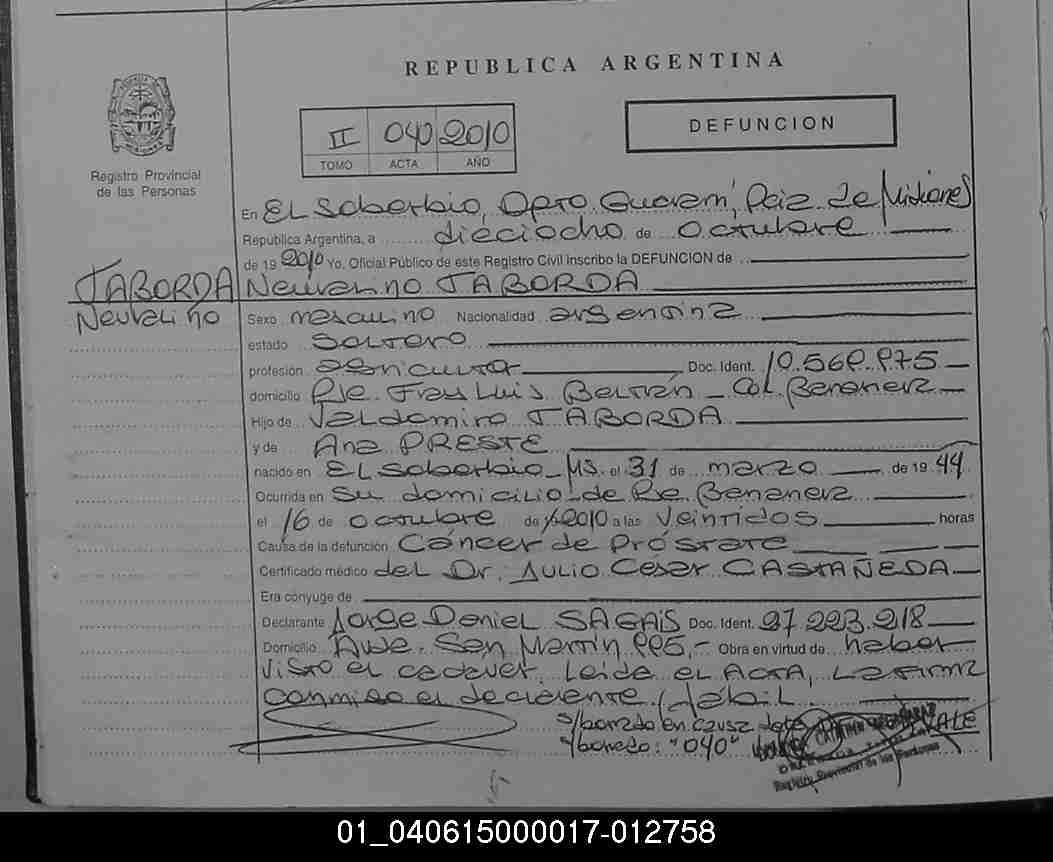 REPUBLICA ARGENTINA
II 040 2010
TOMO ACTA AÑO
DEFUNCION
Registro Provincial
de las Personas
En EL Soberbio, Dpto. Guaraní, Pcia. de Misiones
República Argentina, a dieciocho de octubre
de 19 2010 Yo, Oficial Público de este Registro Civil inscribo la DEFUNCION de
TABORDA
Neutalino TABORDA
Neutalino
Sexo masculino Nacionalidad argentina
estado soltero
profesión agricultor Doc. Ident.
domicilio Pje. Fray Luis Beltrán - Col. Bananera
Hijo de Valdomiro TABORDA
y de Ana PRESTE
nacido en EL Soberbio - MS. el 31 de marzo de 19 44
Ocurrida en su domicilio de Pje. Bananera
el 16 de octubre de 2010 a las veintidos horas
Causa de la defunción Cáncer de Próstata
Certificado médico del Dr. JULIO César CASTAÑEDA
Era cónyuge de
Declarante Jorge Daniel SAGAIS Doc. Ident. 27.223.218
Domicilio Avda. San Martín Obra en virtud de haber
visto el cadaver. Leída el ACTA, La firma
conmigo el declarante
s/borrado en causa VALE
s/borrado: "040"
Registro Provincial de las Personas
01_040615000017-012758